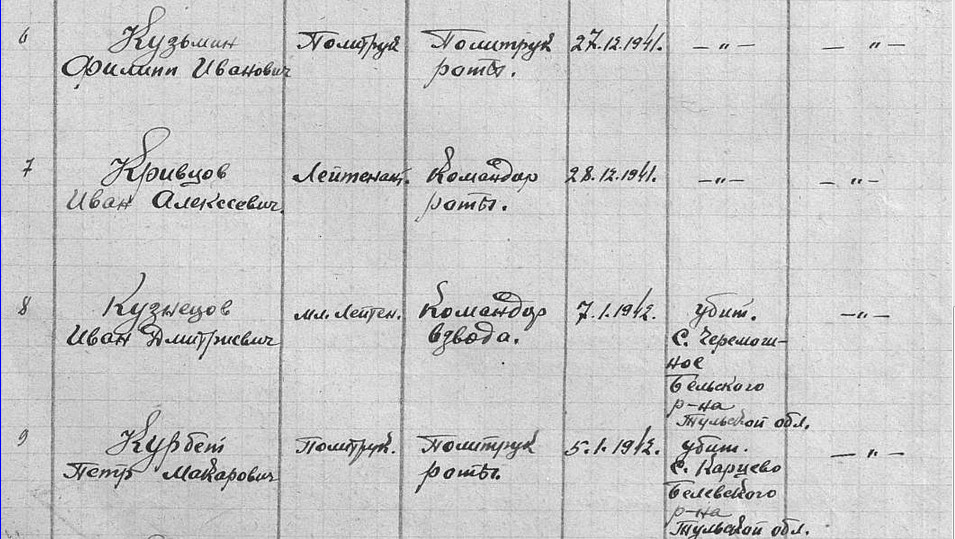 6 Кузьмин Политрук Политрук 27.12.1941. — " — — " —
Филипп Иванович роты.
7 Кривцов Лейтенант. Командир 28.12.1941. — " — — " —
Иван Алексеевич. роты.
8 Кузнецов мл. Лейтен. Командир 7.1.1942. убит. — " —
Иван Дмитриевич взвода. с. Черемош-
ное
Бельского
р-на
Тульской обл.
9 Курбет Политрук. Политрук 5.1.1942. убит. — " —
Петр Макарович роты. с. Карцево
Белевского
р-на
Тульской обл.